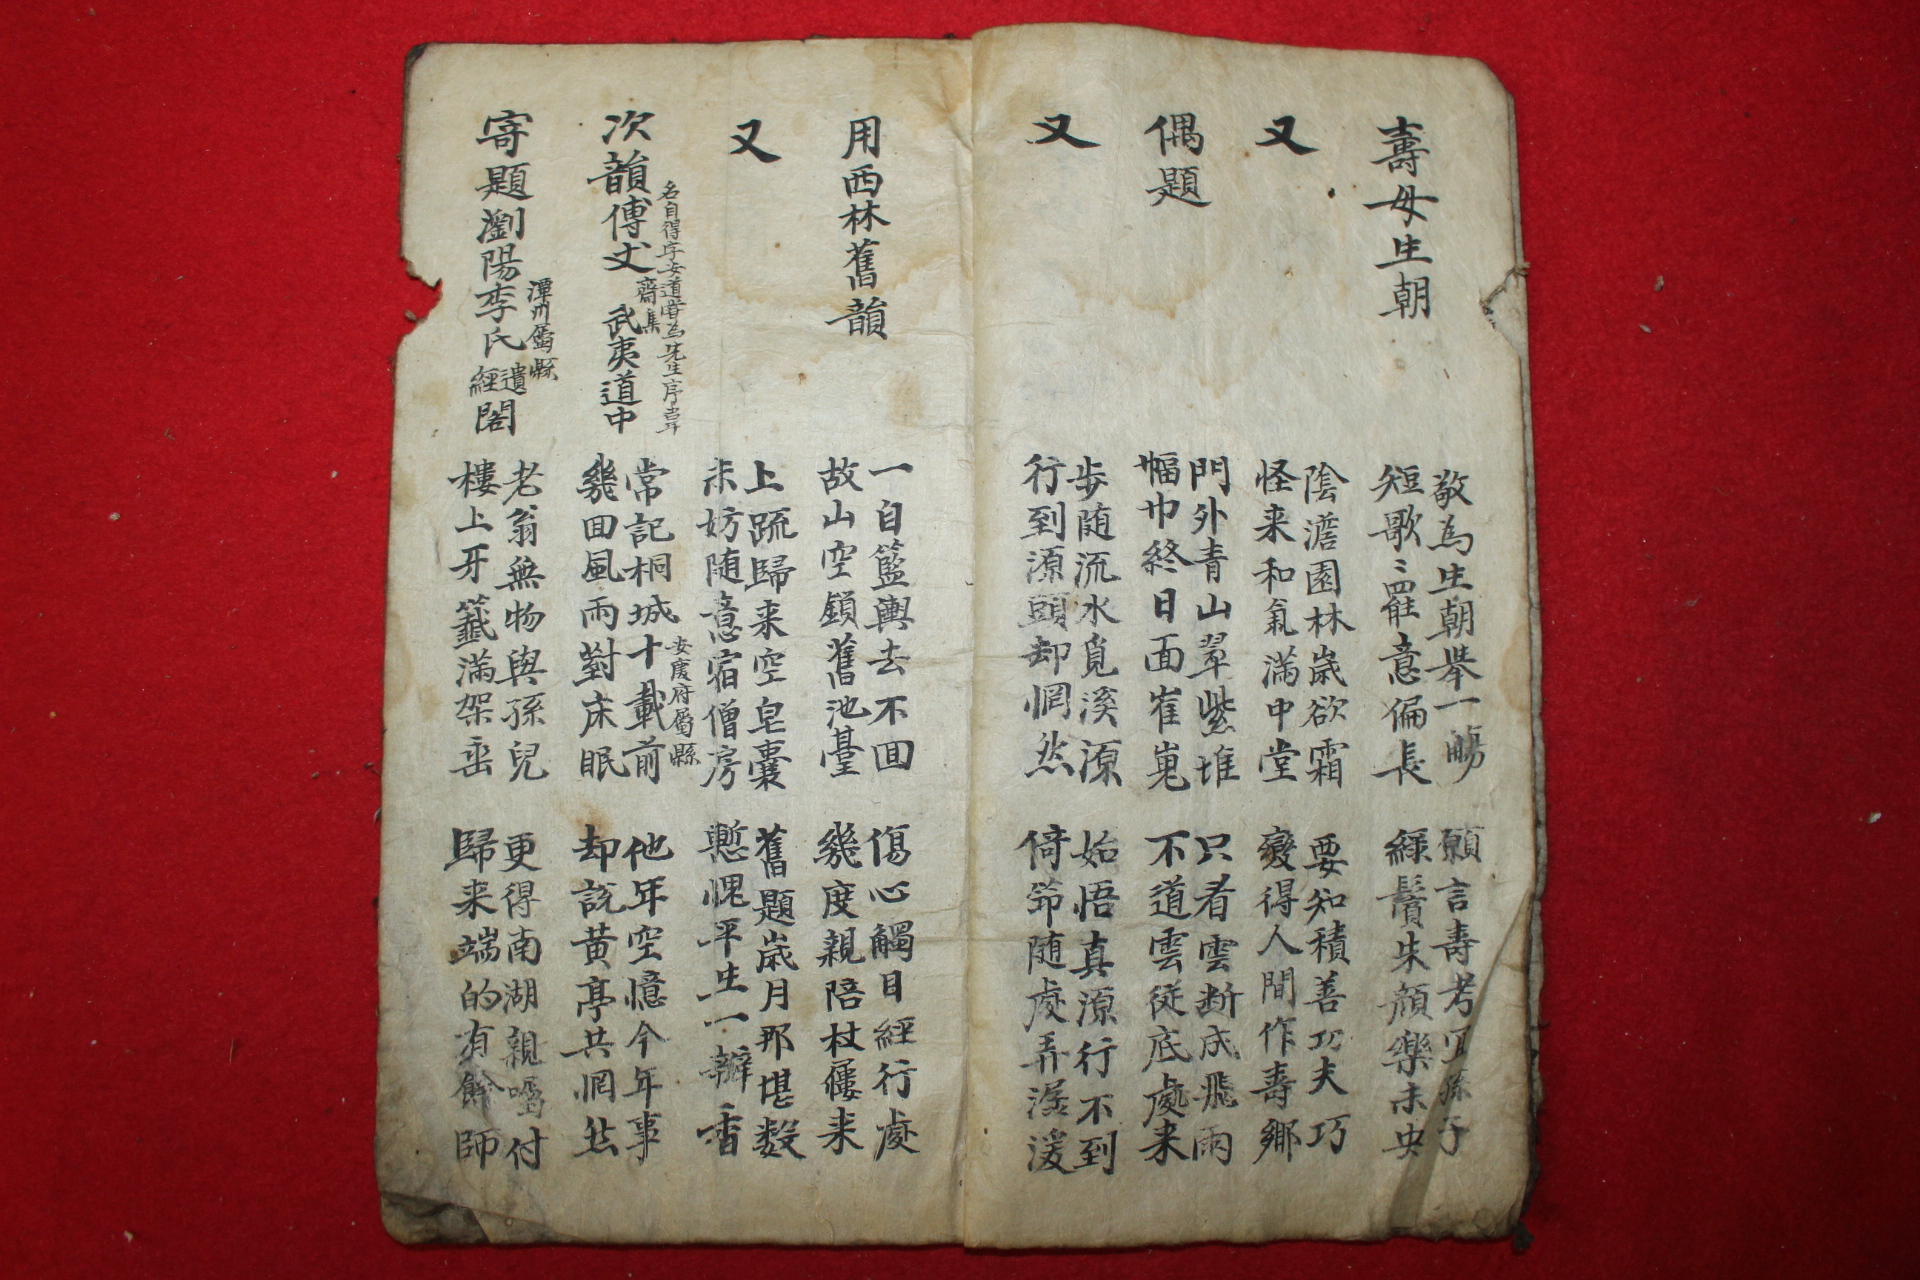 壽母生朝
敬為生朝舉一觴
短歌〻罷意偏長
願言壽考宜孫子
綠鬢朱顔樂未央
又
陰澹園林歲欲霜
怪来和氣滿中堂
要知積善功夫巧
變得人間作壽鄉
偶題
門外青山翠紫堆
幅巾終日面崔嵬
只看雲断成飛雨
不道雲從底處来
又
步随流水覓溪源
行到源頭却惘然
始悟真源行不到
倚筇随處弄潺湲
用西林舊韻
一自籃輿去不回
故山空鎖舊池臺
傷心觸目經行處
幾度親陪杖屨来
又
上疏歸来空皂囊
未妨随意宿僧房
舊題歲月那堪数
慙愧平生一瓣香
次韻傅丈武夷道中
名自得字安道嘗為先生序韋
齋集
常記桐城十載前
安慶府屬縣
幾回風雨對床眠
他年空憶今年事
却說黄亭共惘然
寄題瀏陽李氏遺經閣
潭州屬縣
老翁無物與孫兒
樓上牙籤滿架垂
更得南湖親囑付
歸来端的有餘師